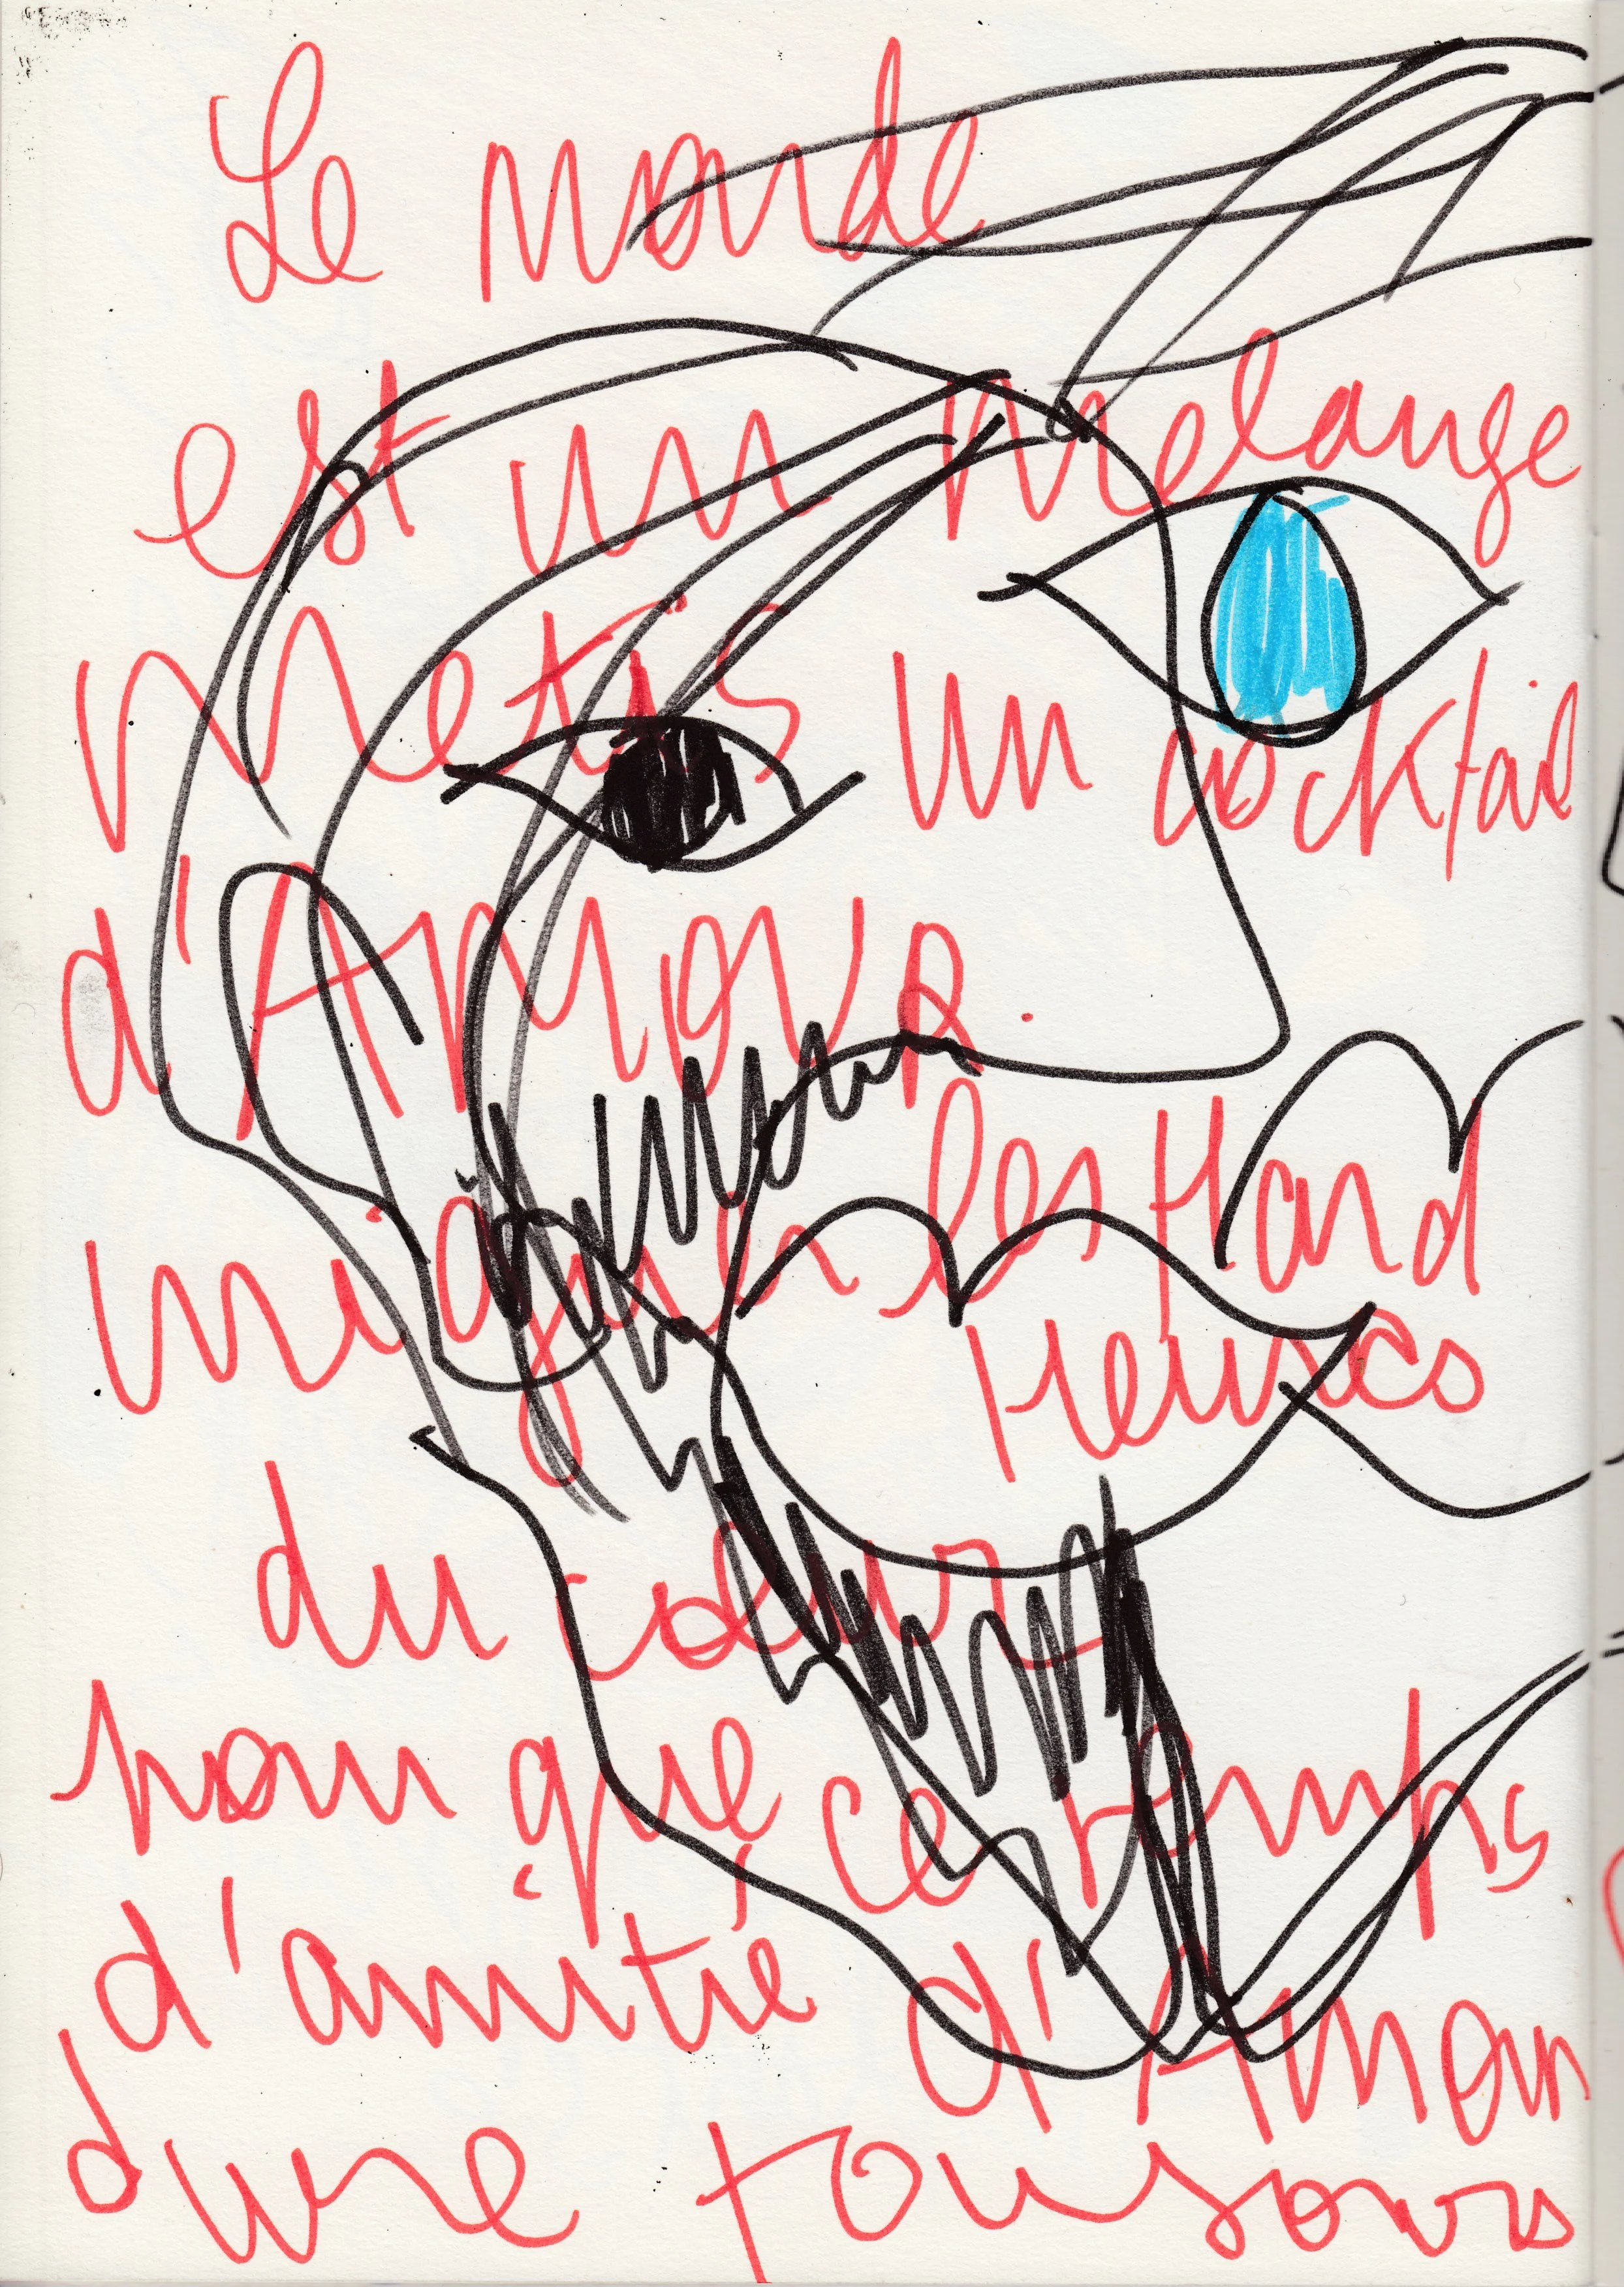 Le monde
est un melange
Metis un cocktail
d'Amour.
les Hard
Heures
du coeur
pour que ce temps
d'amitié d'Amour
dure toujours